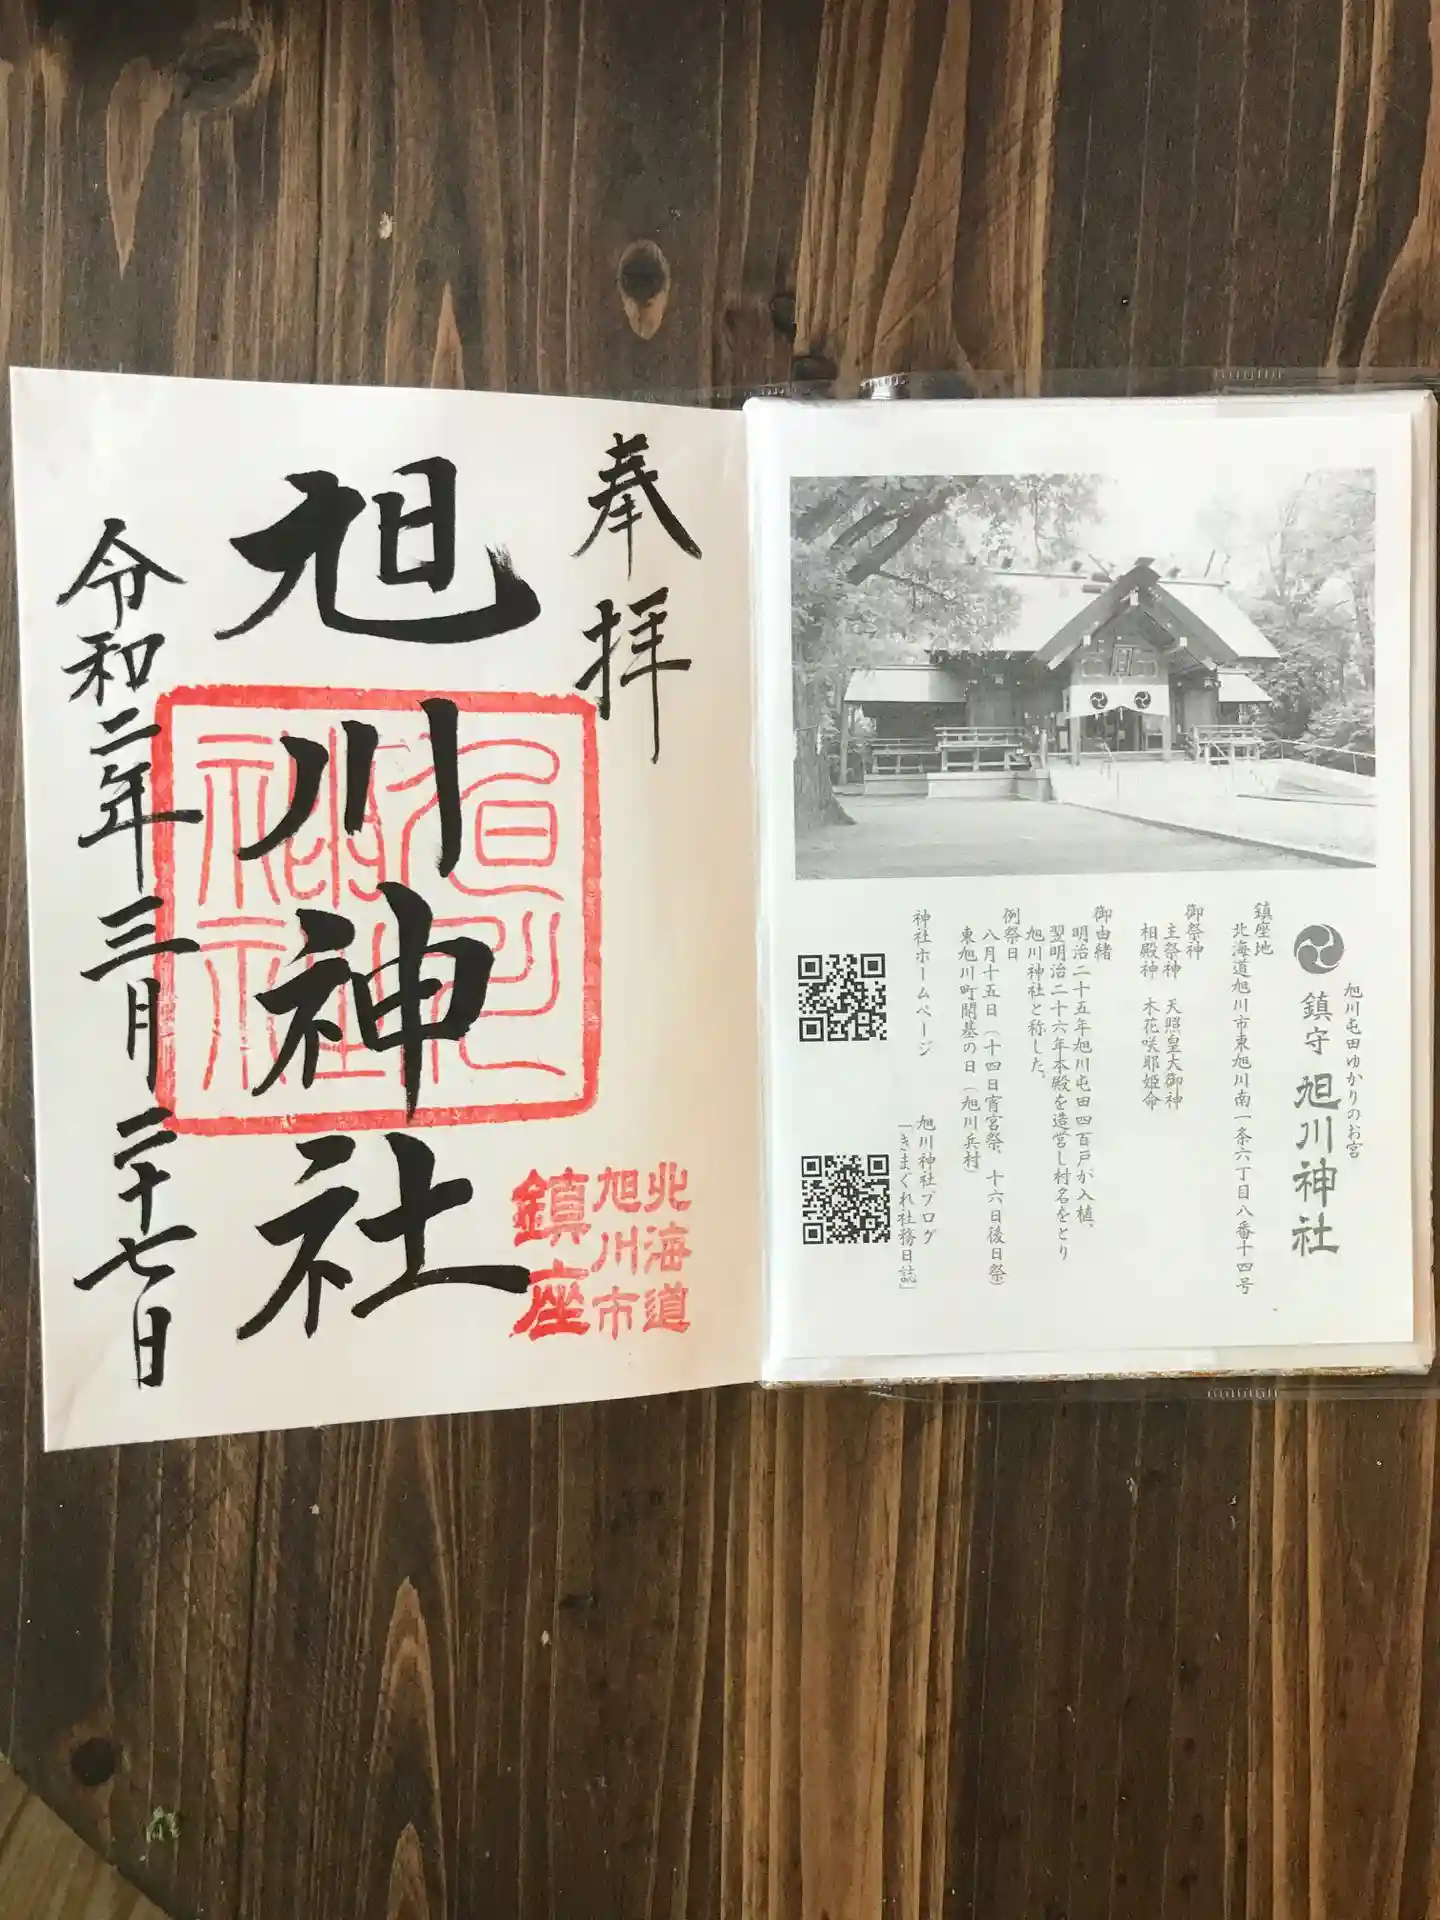 奉拝
旭川神社
令和二年三月二十七日
旭川神社
北海道
旭川市
鎮座
旭川屯田ゆかりのお宮
鎮守 旭川神社
鎮座地
北海道旭川市東旭川南一条六丁目八番十四号
御祭神
主祭神 天照皇大御神
相殿神 木花咲耶姫命
御由緒
明治二十五年旭川屯田四百戸が入植、
翌明治二十六年本殿を造営し村名をとり
旭川神社と称した。
例祭日
八月十五日(十四日宵宮祭、十六日後日祭)
東旭川町開基の日(旭川兵村)
神社ホームページ
旭川神社ブログ
「きまぐれ社務日誌」